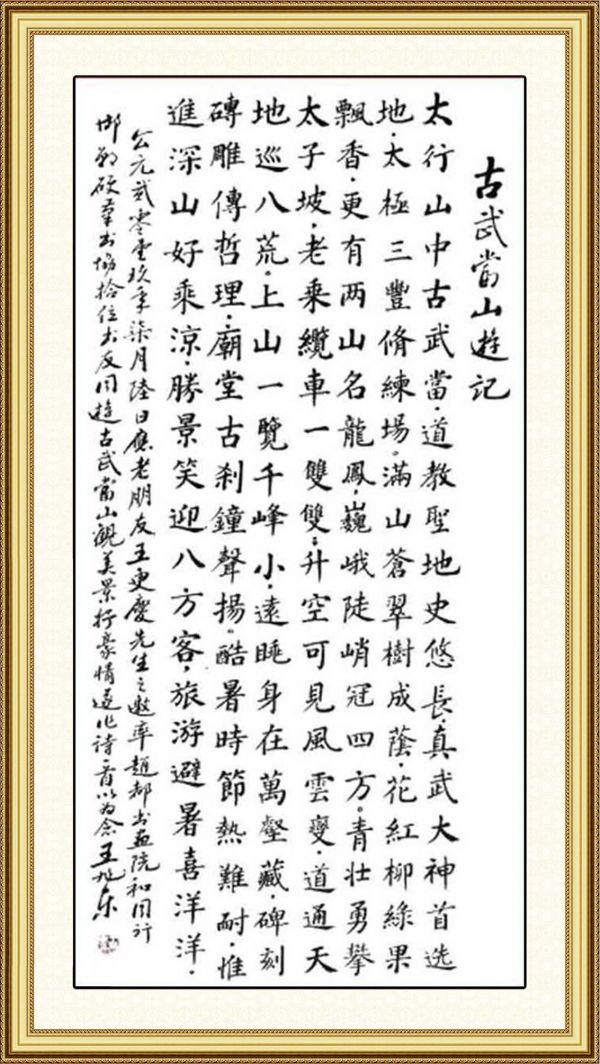 古武當山遊記
太行山中古武當，道教聖地史悠長，真武大神首选
地，太極三豐脩練場。滿山蒼翠樹成蔭，花紅柳綠果
飄香，更有两山名龍鳳，巍峨陡峭冠四方。青壮勇攀
太子坡，老乘纜車一雙雙，升空可見風雲變，道通天
地巡八荒。上山一覽千峰小，遠睡身在萬壑藏，碑刻
磚雕傳哲理，廟堂古刹鐘聲揚。酷暑時節熱難耐，惟
進深山好乘涼，勝景笑迎八方客，旅游避暑喜洋洋。
公元貳零壹玖年柒月陸日應老朋友王更慶先生之邀率趙都书画院和同行
邯郸书協拾位书友同遊古武當山觀美景抒豪情遂作诗一首以为念王旭东